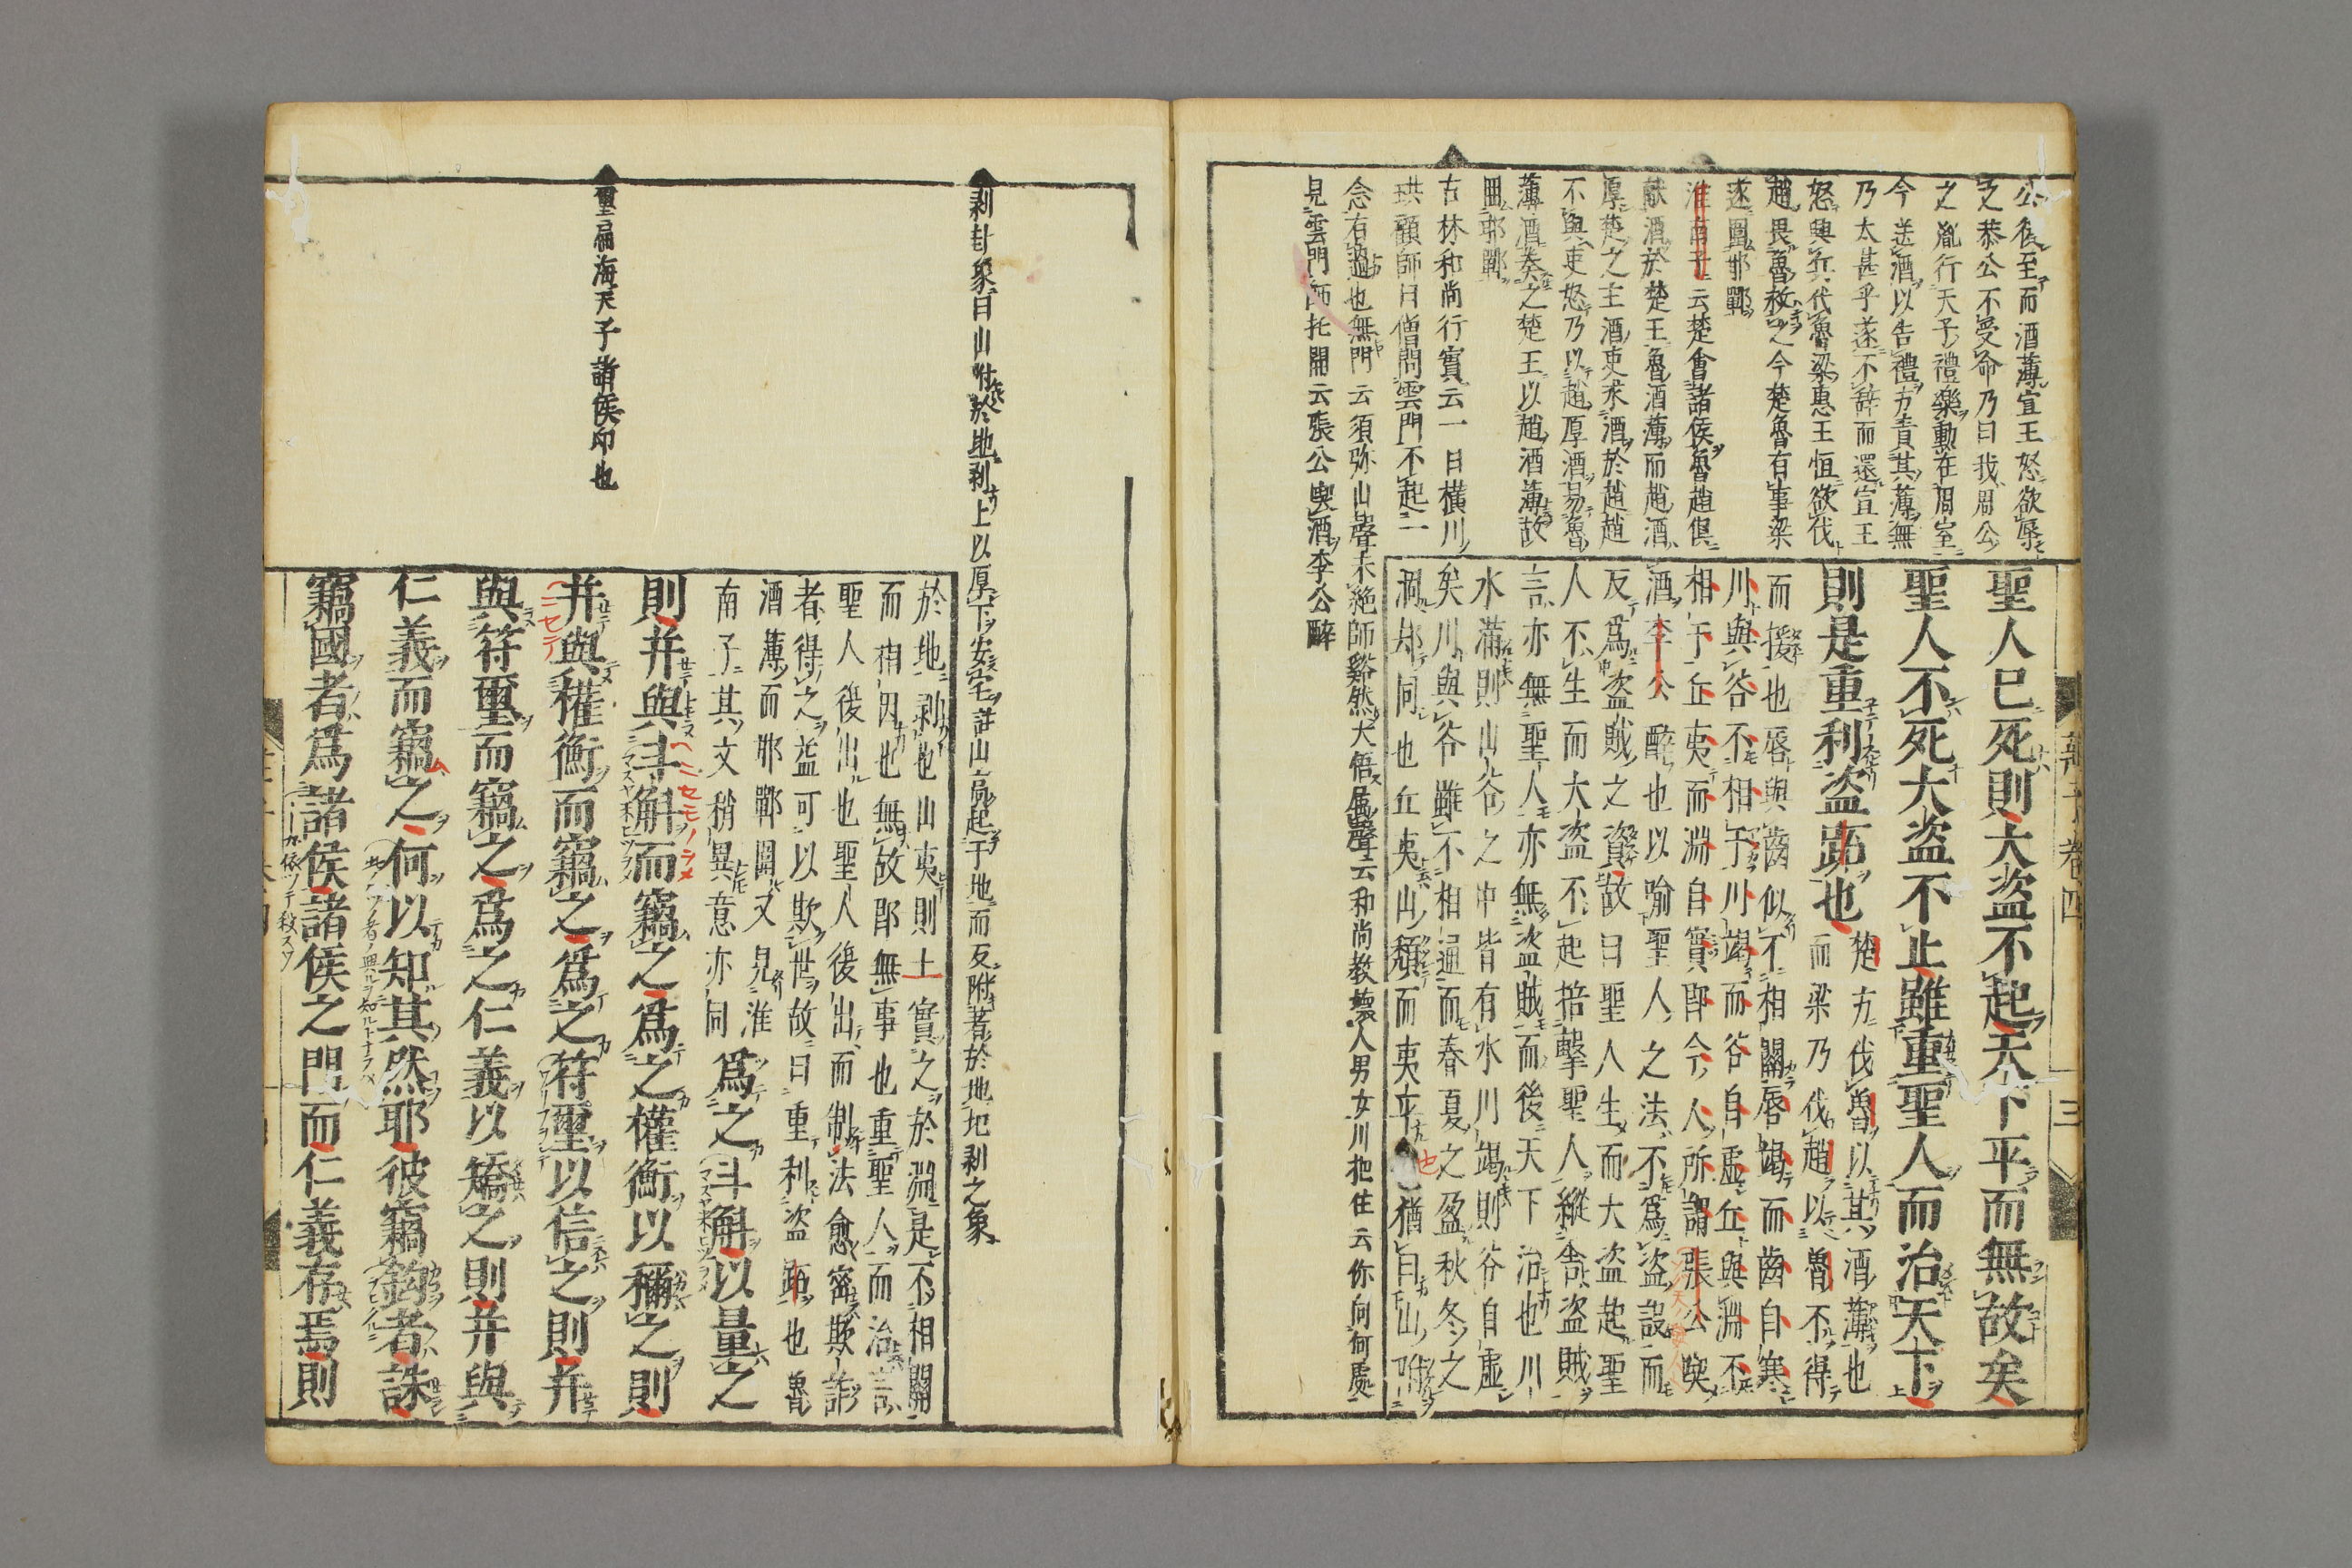 公後至而酒薄宣王怒欲辱
之恭公不受命乃曰我周公
之胤行天子禮樂勳在周室
今送酒以告禮方責其薄無
乃太甚乎遂不辭而還宣王
怒興兵代魯梁惠王恒欲伐
趙畏魯救之今楚魯有事梁
遂圍邯鄲
淮南子云楚會諸侯魯趙俱
献酒於楚王魯酒薄而趙酒
厚楚之主酒吏求酒於趙趙
不與吏怒乃以趙厚酒易魯
薄酒奏之楚王以趙酒薄故
圍邯鄲
古林和尚行實云一日橫川
珙顧師曰僧問雲門不起一
念有過也無門云須弥山聲未絶師谿然大悟属聲云和尚教壊人男女川把住云你向何處
見雲門師托開云張公喫酒李公醉
聖人已死則大盗不起天下平而無故矣
聖人不死大盗不止雖重聖人而治天下
則是重利盗跖也楚方伐魯以其酒薄也
而梁乃伐趙以魯不得
而援也唇與齒似不相關唇竭而齒自寒
川與谷不相于川竭而谷自虚丘與淵不
相于丘夷而淵自實即今人所謂張公喫
酒李公醉也以喻聖人之法不為盗設而
反為盗賊之資故曰聖人生而大盗起聖
人不生而大盗不起掊擊聖人縱舎盗賊
言亦無聖人亦無盗賊而後天下治也川
水滿則山谷之中皆有水川竭則谷自虚
矣川與谷雖不相通而春夏之盈秋冬之
涸却同也丘夷山頹而夷平也猶曰山附
剥卦象曰山附於地剥上以厚下安宅註山高起于地而反附著於地圮剥之象
璽扁海天子諸侯印也
於地剥也山夷則土實之於淵是不相關
而相因也無故即無事也重聖人而治言
聖人後出也聖人後出而制法愈密欺詐
者得之益可以欺世故曰重利盗跖也魯
酒薄而邯鄲圍又見淮
南子其文稍異意亦同為之斗斛以量之
則并與斗斛而竊之為之權衡以稱之則
并與權衡而竊之為之符璽以信之則并
與符璽而竊之為之仁義以矯之則并與
仁義而竊之何以知其然耶彼竊鈎者誅
竊國者為諸侯諸侯之門而仁義存焉則